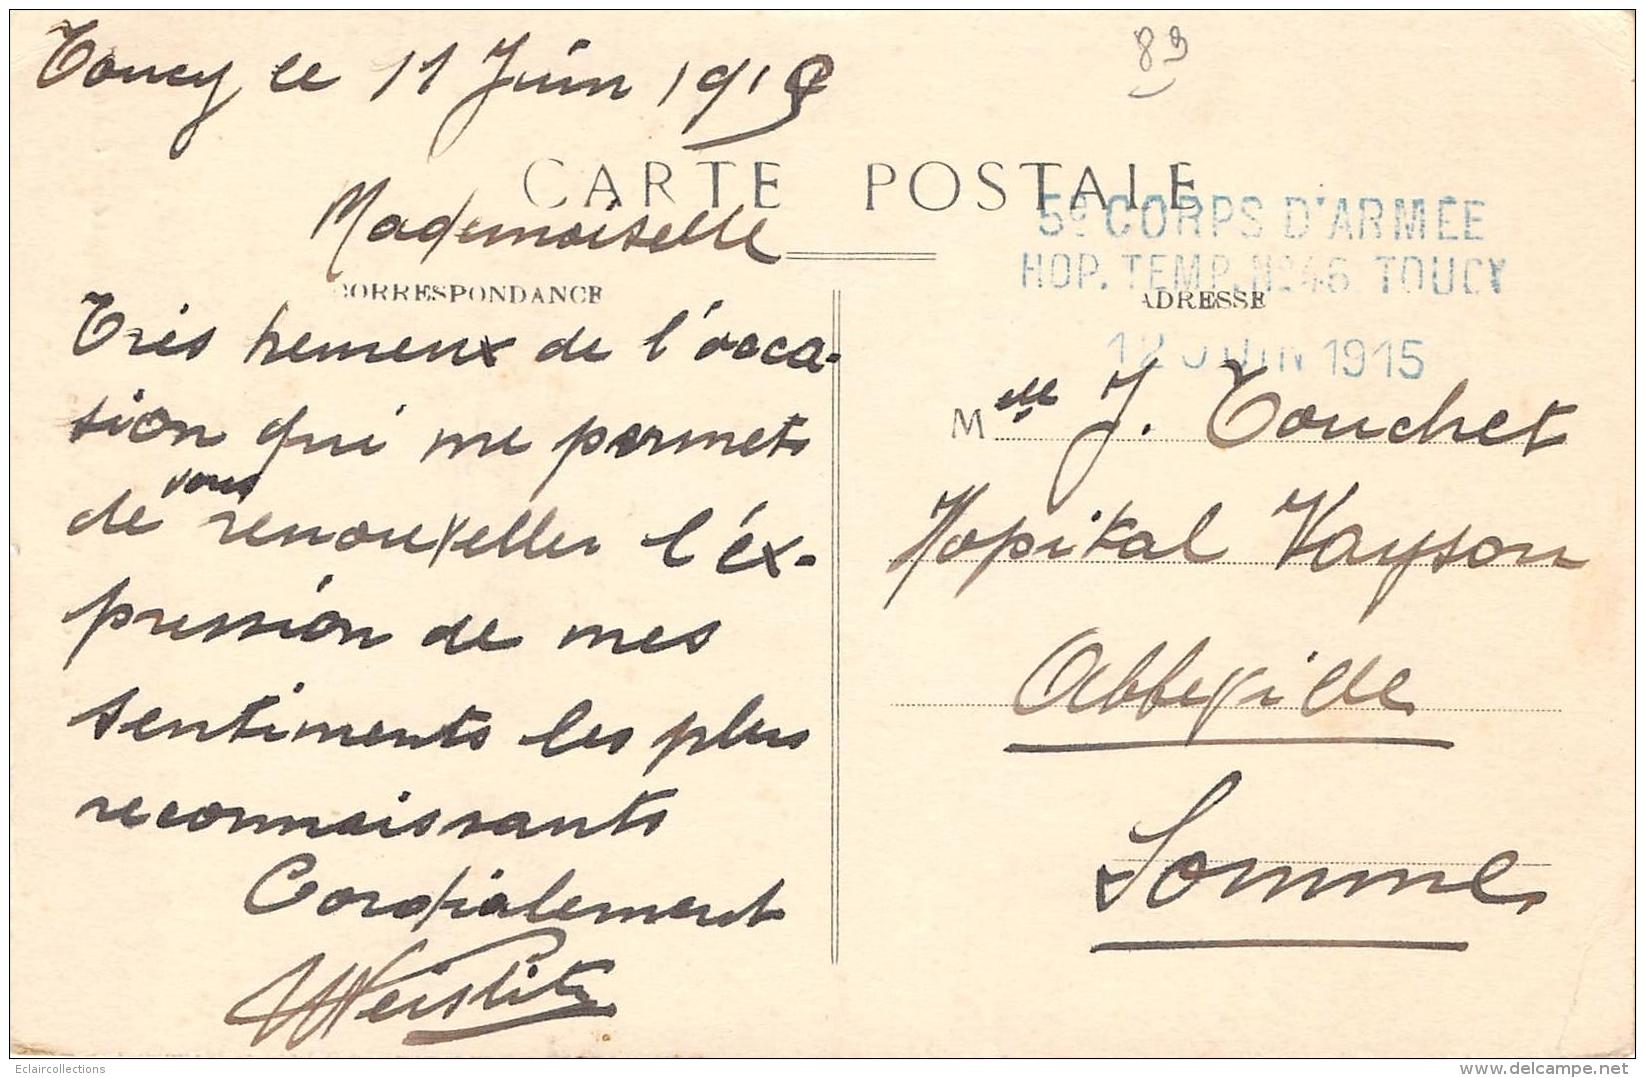 Toucy le 11 Juin 1915
89
CARTE POSTALE
5e CORPS D'ARMÉE
HOP. TEMP. No 46 TOUCY
12 JUIN 1915
Mademoiselle
CORRESPONDANCE
ADRESSE
Très heureux de l'occa-
sion qui me permets
de vous renouveller l'éx-
pression de mes
sentiments les plus
reconnaissants
Cordialement
Melle J. Touchet
Hopital Vayson
Abbeville
Somme
Eclaircollections
delcampe.net